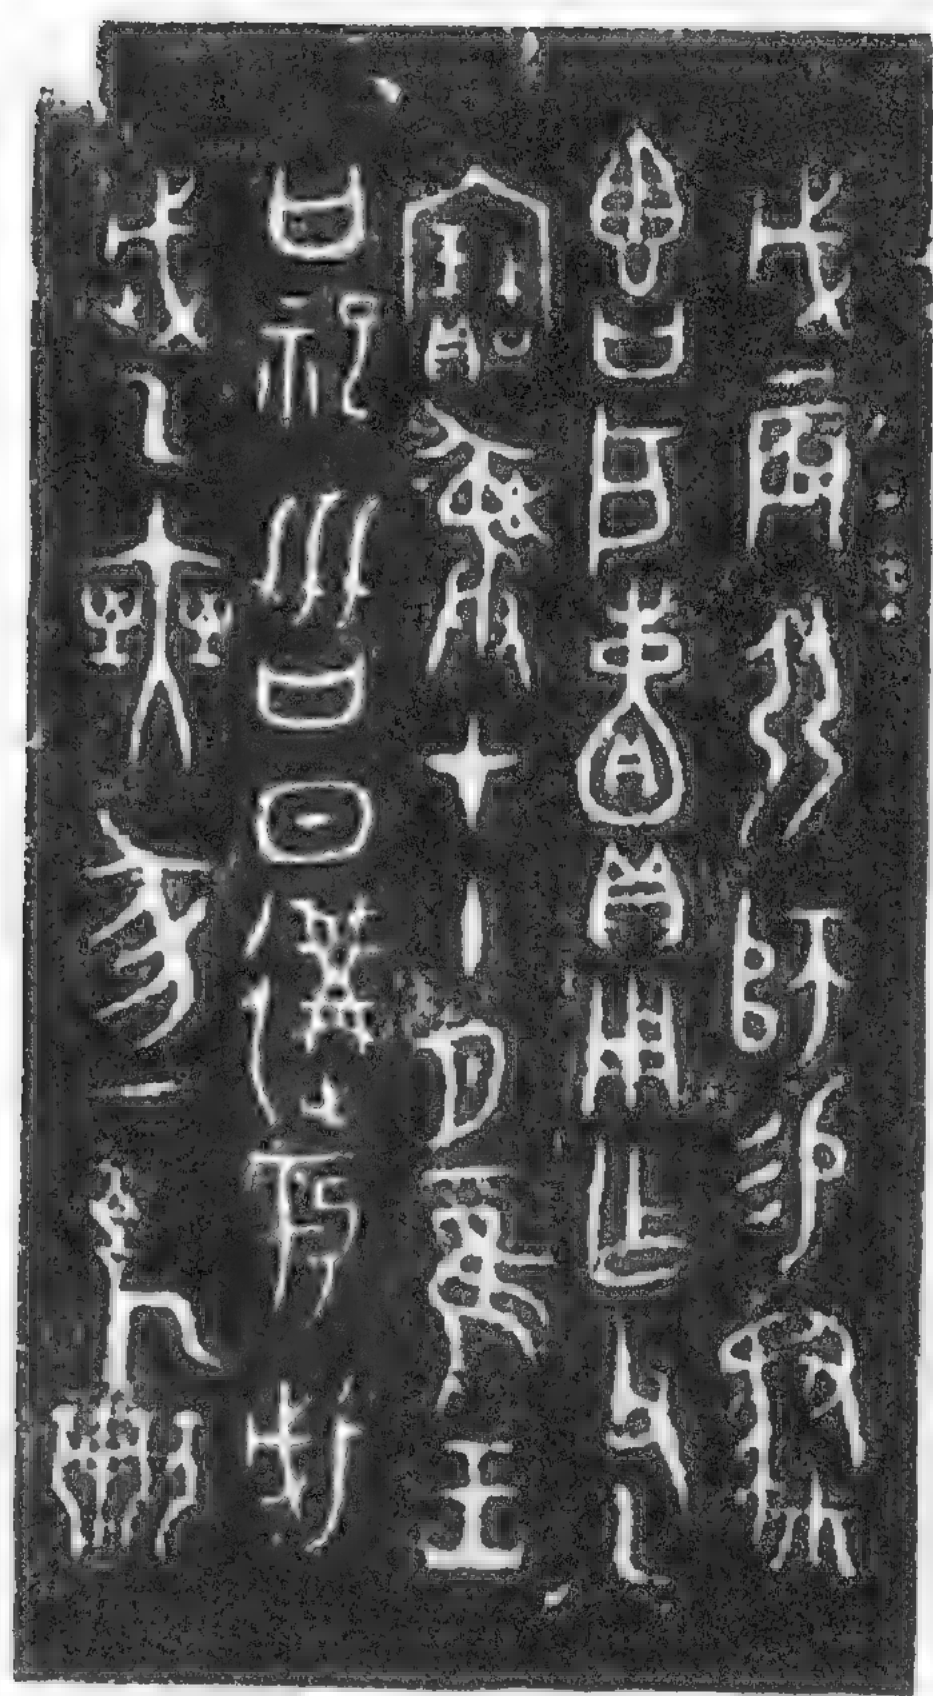 戊辰弜師易𬆊
叀廿𠧪橐貝用乍父乙
寶彝才十月一隹王
廿祀劦日遘于匕戊
武乙奭豕一